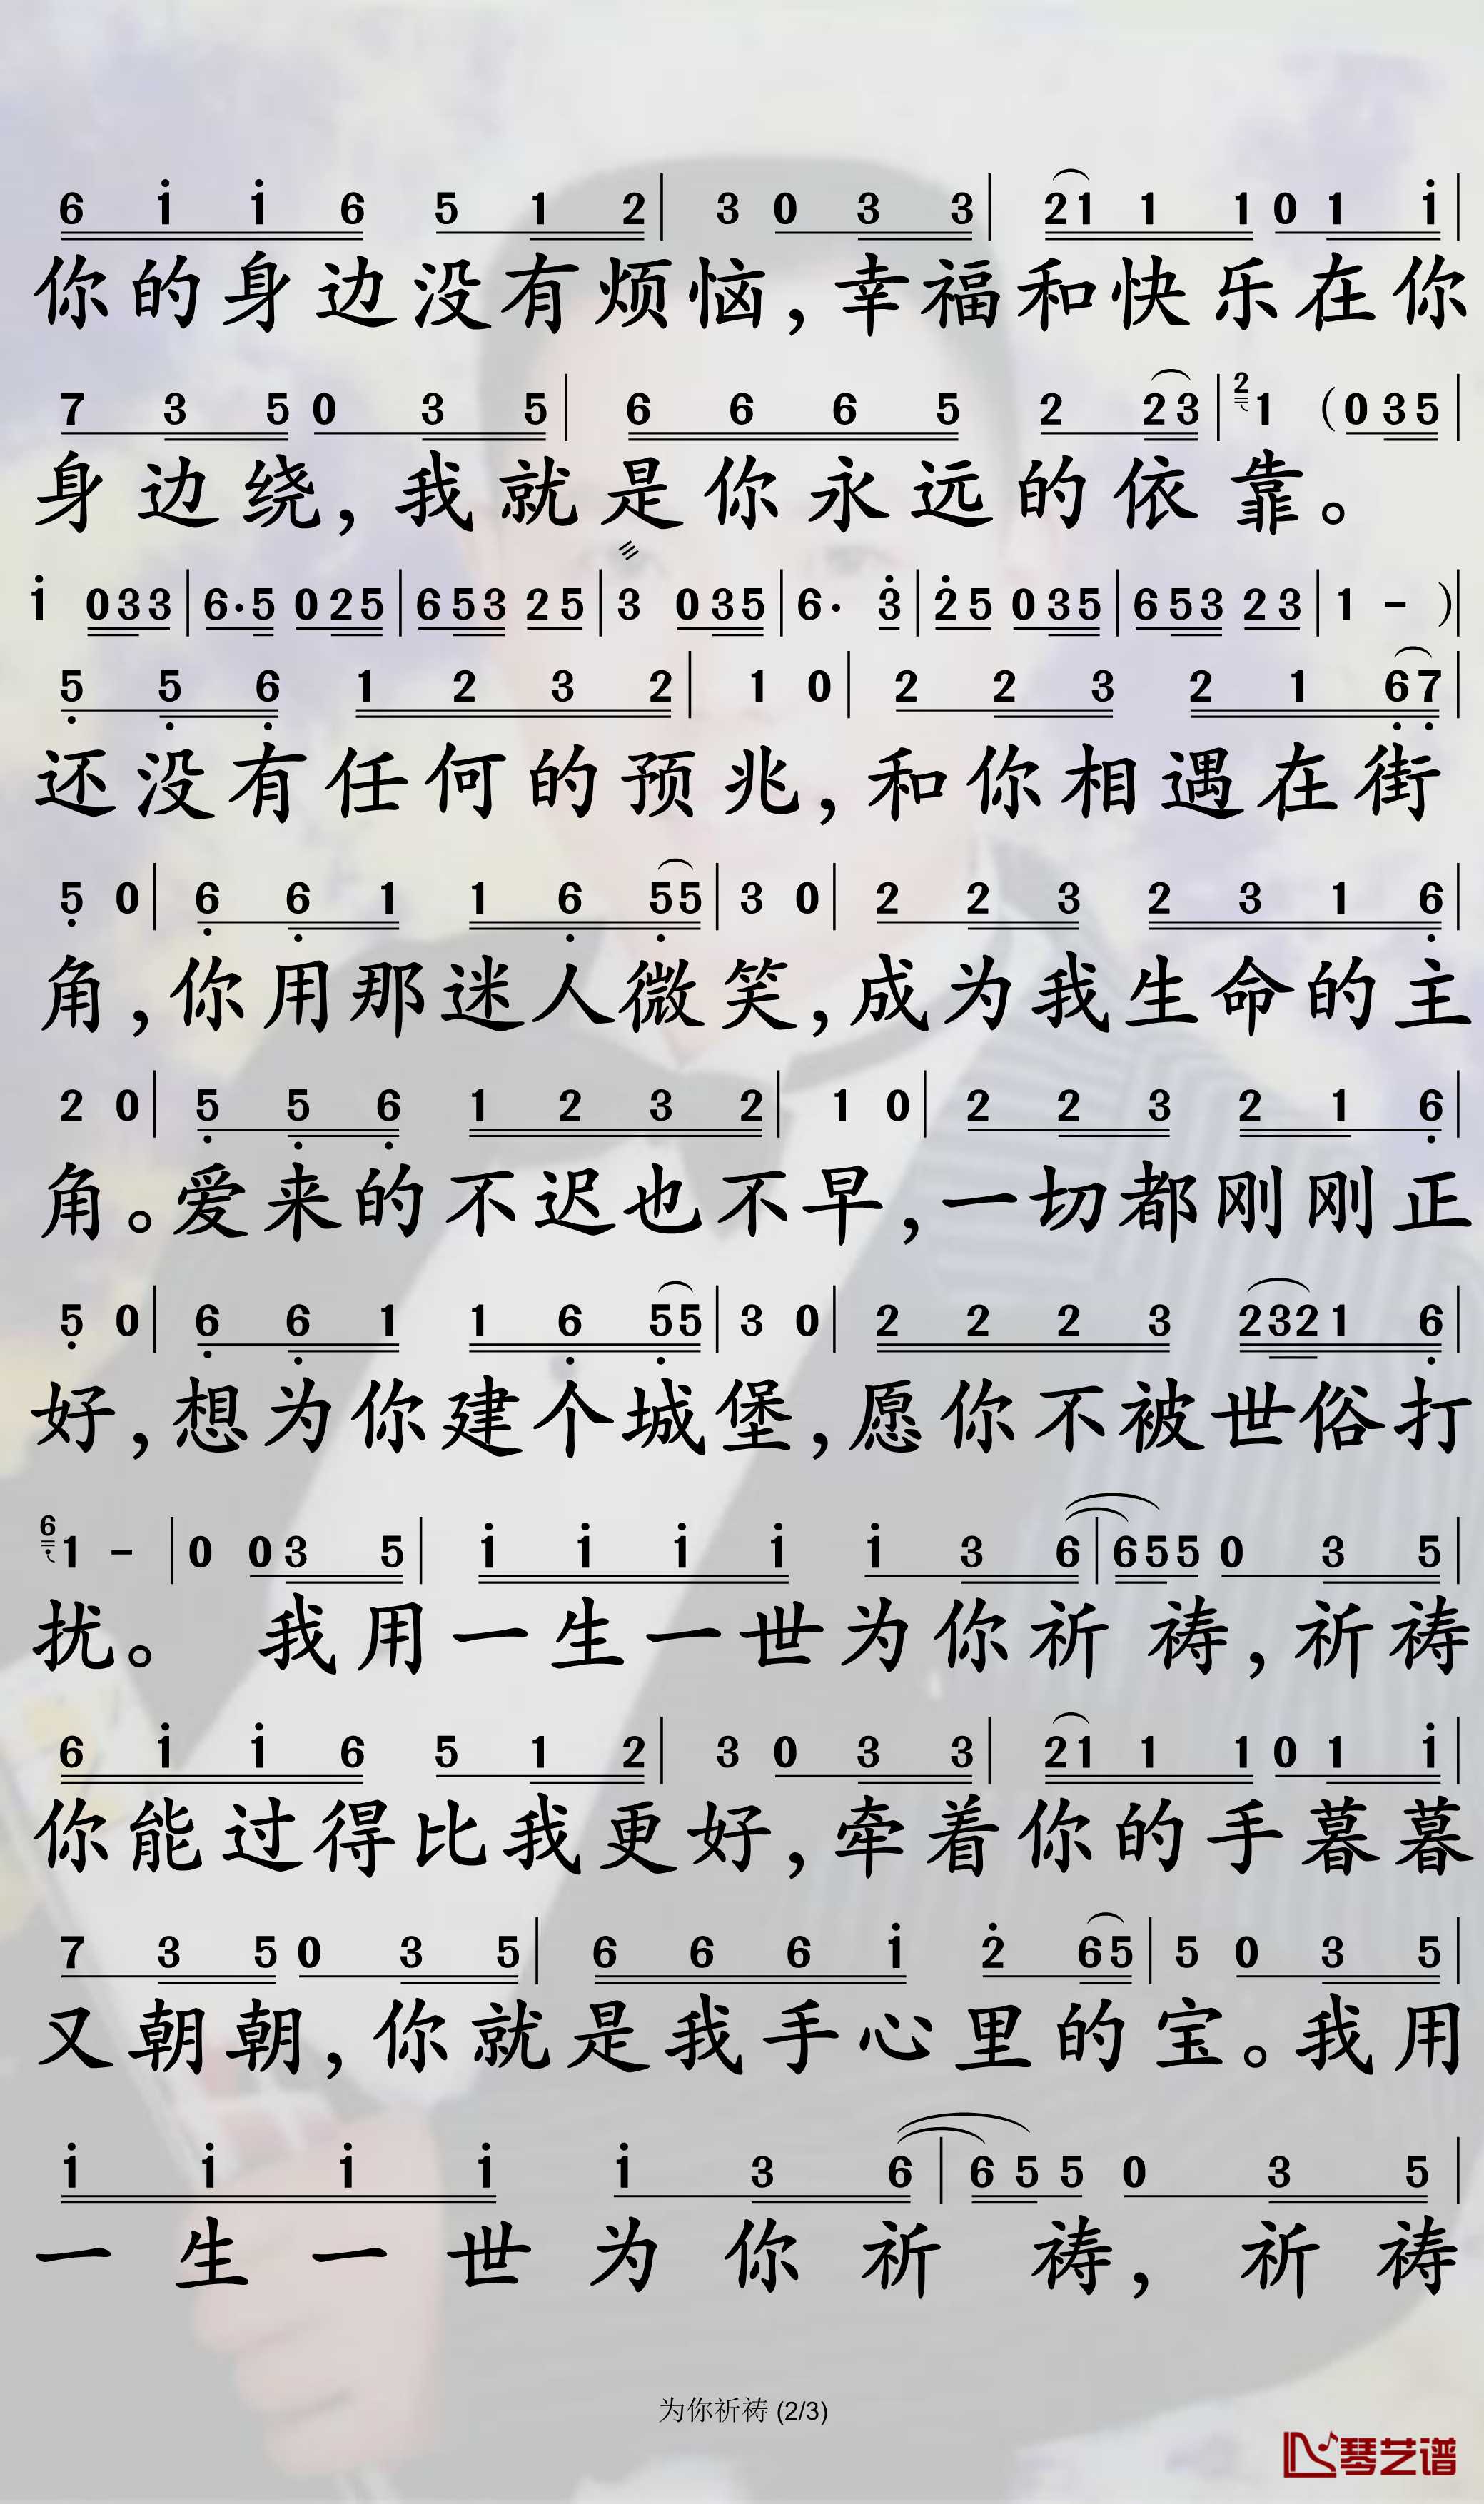 6 i i 6 5 1 2 | 3 0 3 3 | 21 1 1 0 1 i |
你的身边没有烦恼,幸福和快乐在你
7 3 5 0 3 5 | 6 6 6 5 2 23 | 2 1 (0 3 5 |
身边绕,我就是你永远的依靠。
i 033 | 6·5 025 | 653 25 | 3 035 | 6· 3 | 25 035 | 653 23 | 1 - )|
5 5 6 1 2 3 2 | 1 0 | 2 2 3 2 1 67 |
还没有任何的预兆,和你相遇在街
5 0 | 6 6 1 1 6 55 | 3 0 | 2 2 3 2 3 1 6 |
角,你用那迷人微笑,成为我生命的主
2 0 | 5 5 6 1 2 3 2 | 1 0 | 2 2 3 2 1 6 |
角。爱来的不迟也不早,一切都刚刚正
5 0 | 6 6 1 1 6 55 | 3 0 | 2 2 2 3 2321 6 |
好,想为你建个城堡,愿你不被世俗打
6 1 - | 0 03 5 | i i i i i 3 6 | 655 0 3 5 |
扰。 我用一生一世为你祈祷,祈祷
6 i i 6 5 1 2 | 3 0 3 3 | 21 1 1 0 1 i |
你能过得比我更好,牵着你的手暮暮
7 3 5 0 3 5 | 6 6 6 i 2 65 | 5 0 3 5 |
又朝朝,你就是我手心里的宝。我用
i i i i i 3 6 | 6 5 5 0 3 5 |
一生一世为你祈祷,祈祷
为你祈祷 (2/3)
琴艺谱